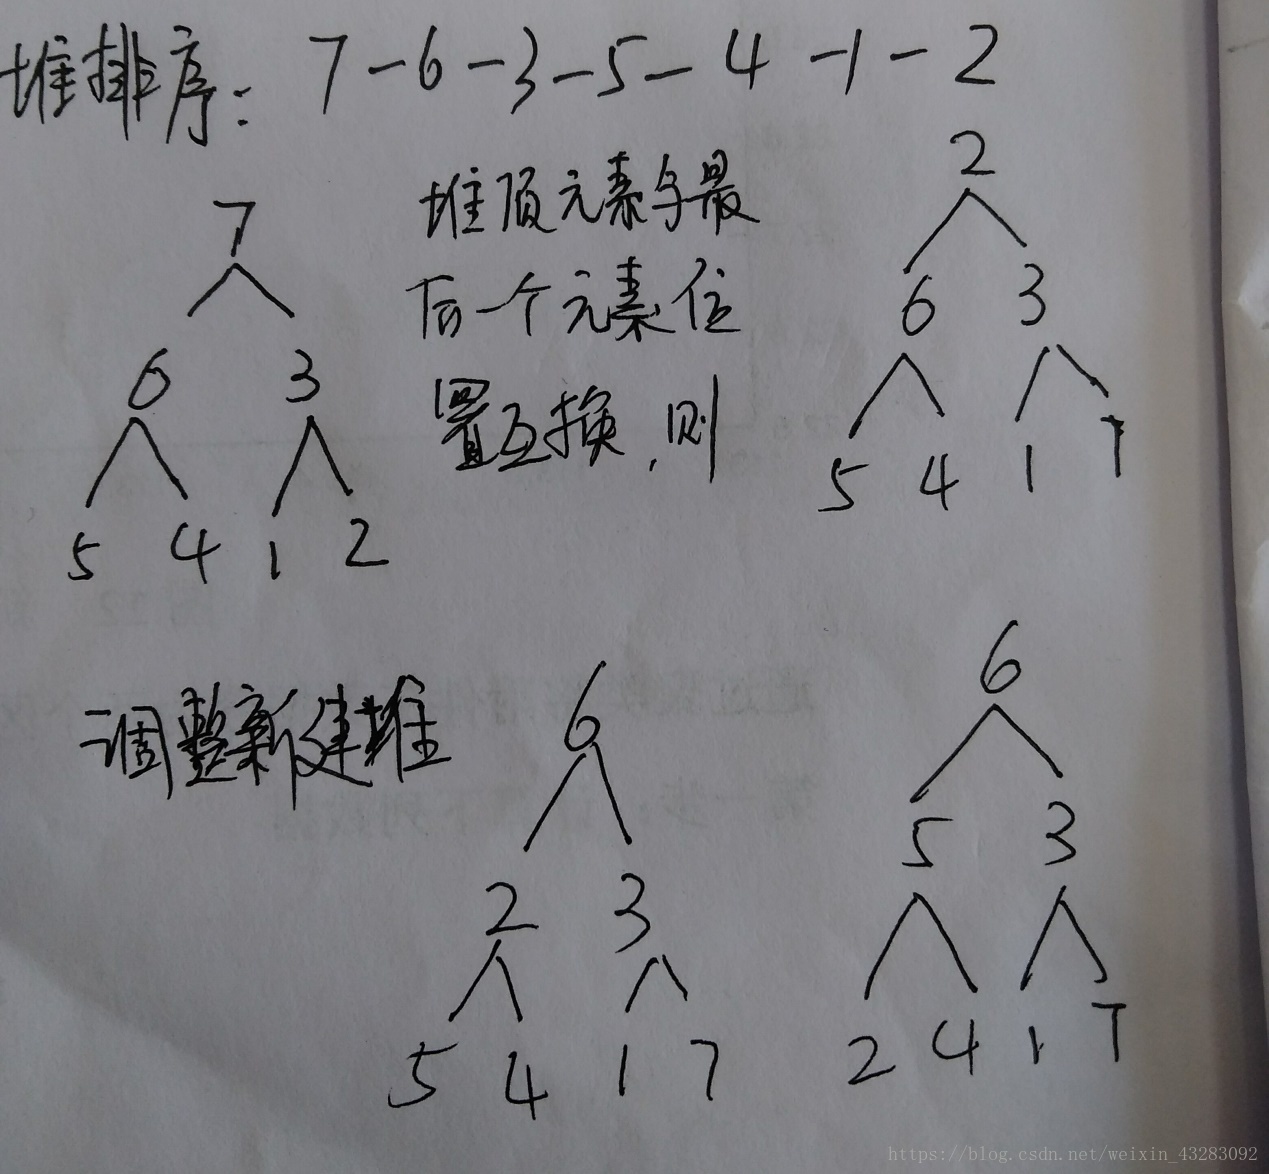 堆排序: 7-6-3-5-4-1-2
7
6 3
5 4 1 2
堆顶元素与最
后一个元素位
置互换,则
2
6 3
5 4 1 7
调整新建堆
6
2 3
5 4 1 7
6
5 3
2 4 1 7
https://blog.csdn.net/weixin_43283092